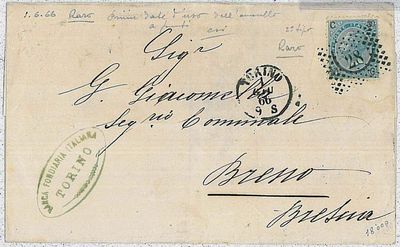 1.6.66 Raro prima data d'uso dell'annullo
a punti
2° tipo
Raro
Sigr
G. Giacomo
Segrio Comunale
Breno
Brescia
TORINO
66
9 S
BANCA FONDIARIA ITALIANA
TORINO
C
18.000